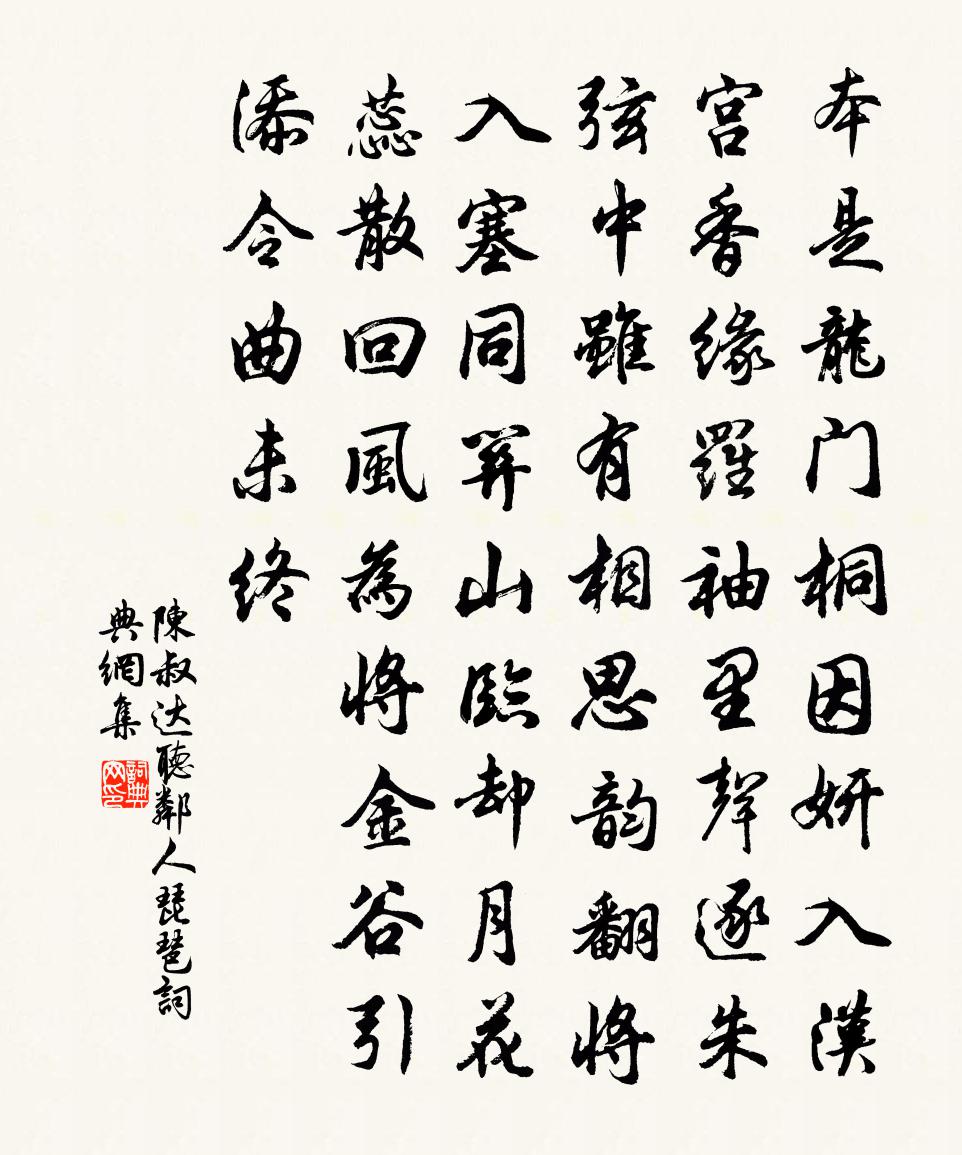 本是龍门桐因妍入漢
宫香緣羅袖里聲逐朱
弦中雖有相思韵翻將
入塞同関山臨却月花
蕊散回風為將金谷引
添令曲未终
陳叔达聽鄰人琵琶詞
典網集
詞典
网印